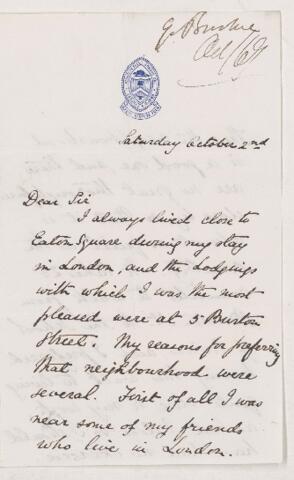 G. Burke
Oct/69
Saturday October 2nd
Dear Sir
I always lived close to
Eaton Square during my stay
in London, and the Lodgings
with which I was the most
pleased were at 5 Burton
Street. My reasons for preferring
that neighbourhood were
several. First of all I was
near some of my friends
who live in London.